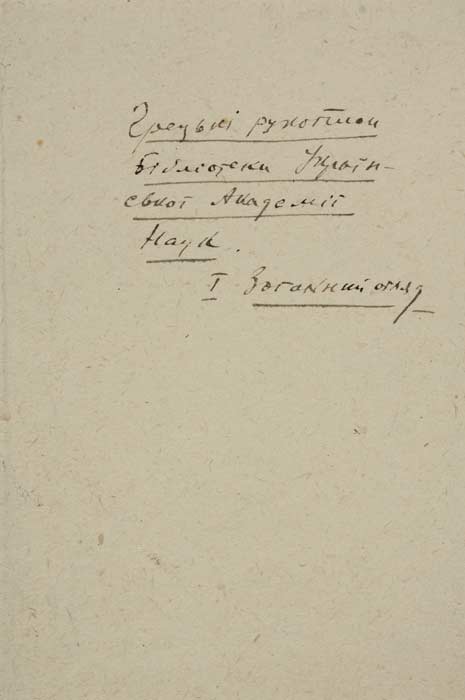 Грецькі рукописи
Бібліотеки Україн-
ської Академії
Наук.
I Загальний огляд